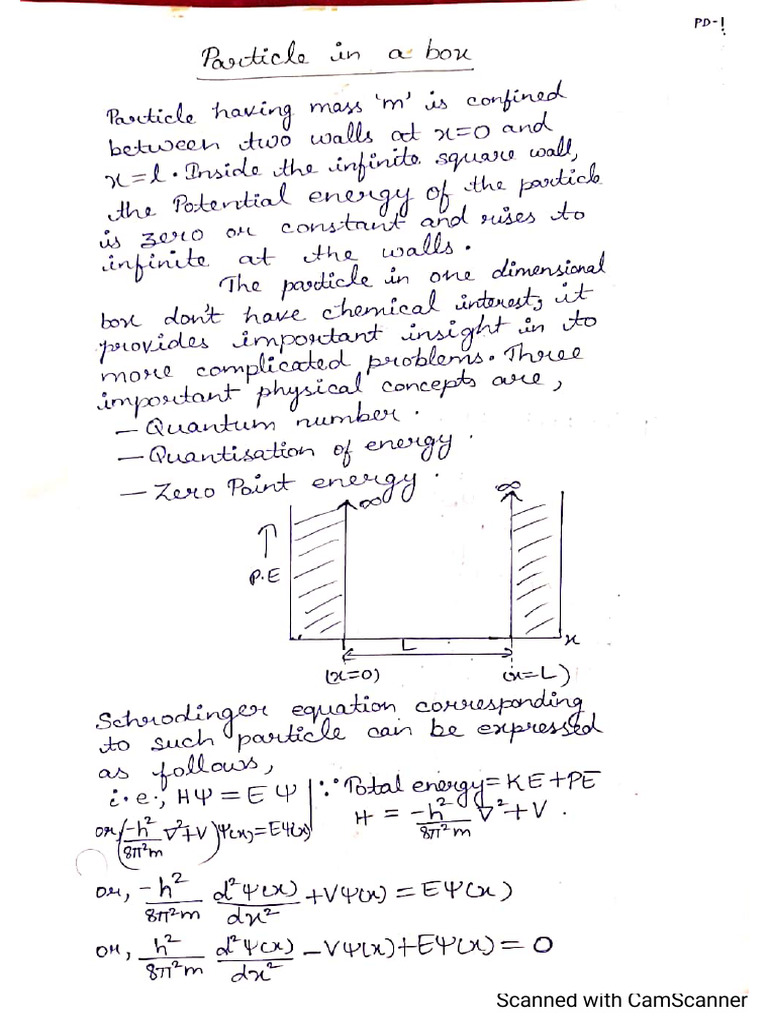 PD-1
Particle in a box
Particle having mass 'm' is confined
between two walls at x=0 and
x=l. Inside the infinite square wall,
the Potential energy of the particle
is zero or constant and rises to
infinite at the walls.
The particle in one dimensional
box don't have chemical interest, it
provides important insight in to
more complicated problems. Three
important physical concepts are,
— Quantum number.
— Quantisation of energy.
— Zero Point energy.
∞ ∞
↑
P.E
L x
(x=0) (x=L)
Schrodinger equation corresponding
to such particle can be expressed
as follows,
i.e., Hψ = Eψ | ∵ Total energy = KE + PE
H = -h²/8π²m ∇² + V.
or, (-h²/8π²m ∇² + V) ψ(x) = Eψ(x)
or, -h²/8π²m d²ψ(x)/dx² + Vψ(x) = Eψ(x)
or, h²/8π²m d²ψ(x)/dx² - Vψ(x) + Eψ(x) = 0
Scanned with CamScanner